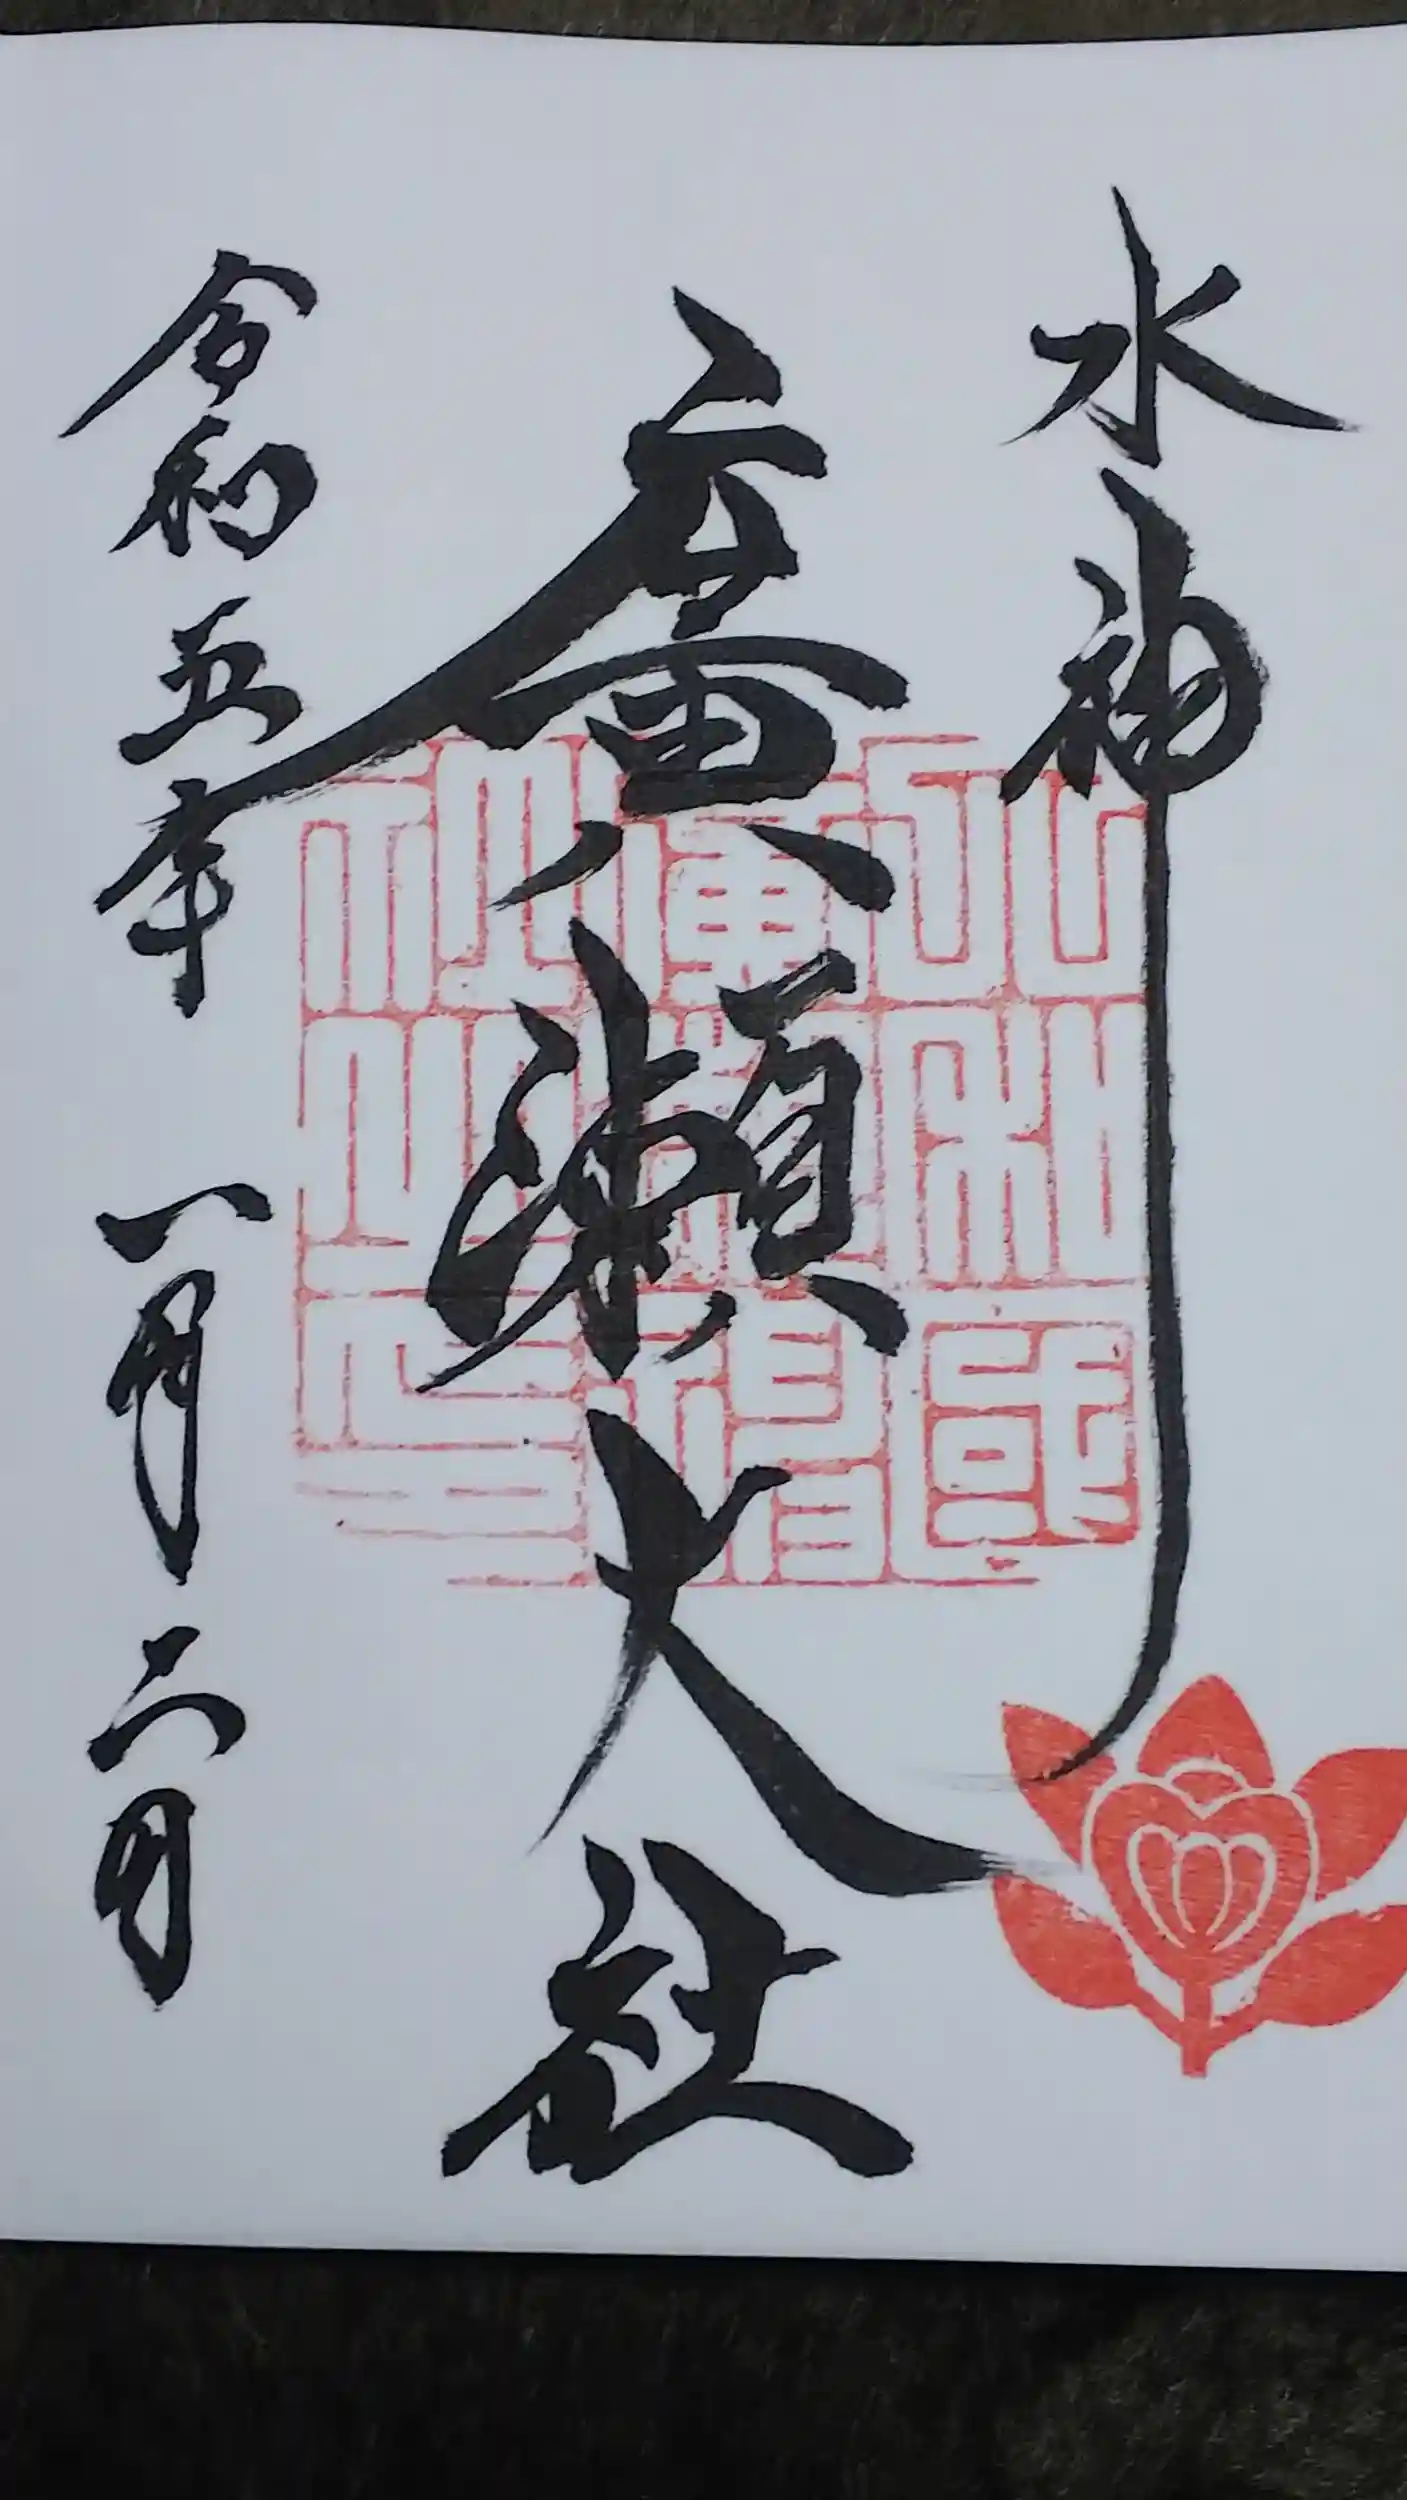 水神
廣瀬大社
令和五年 一月二日